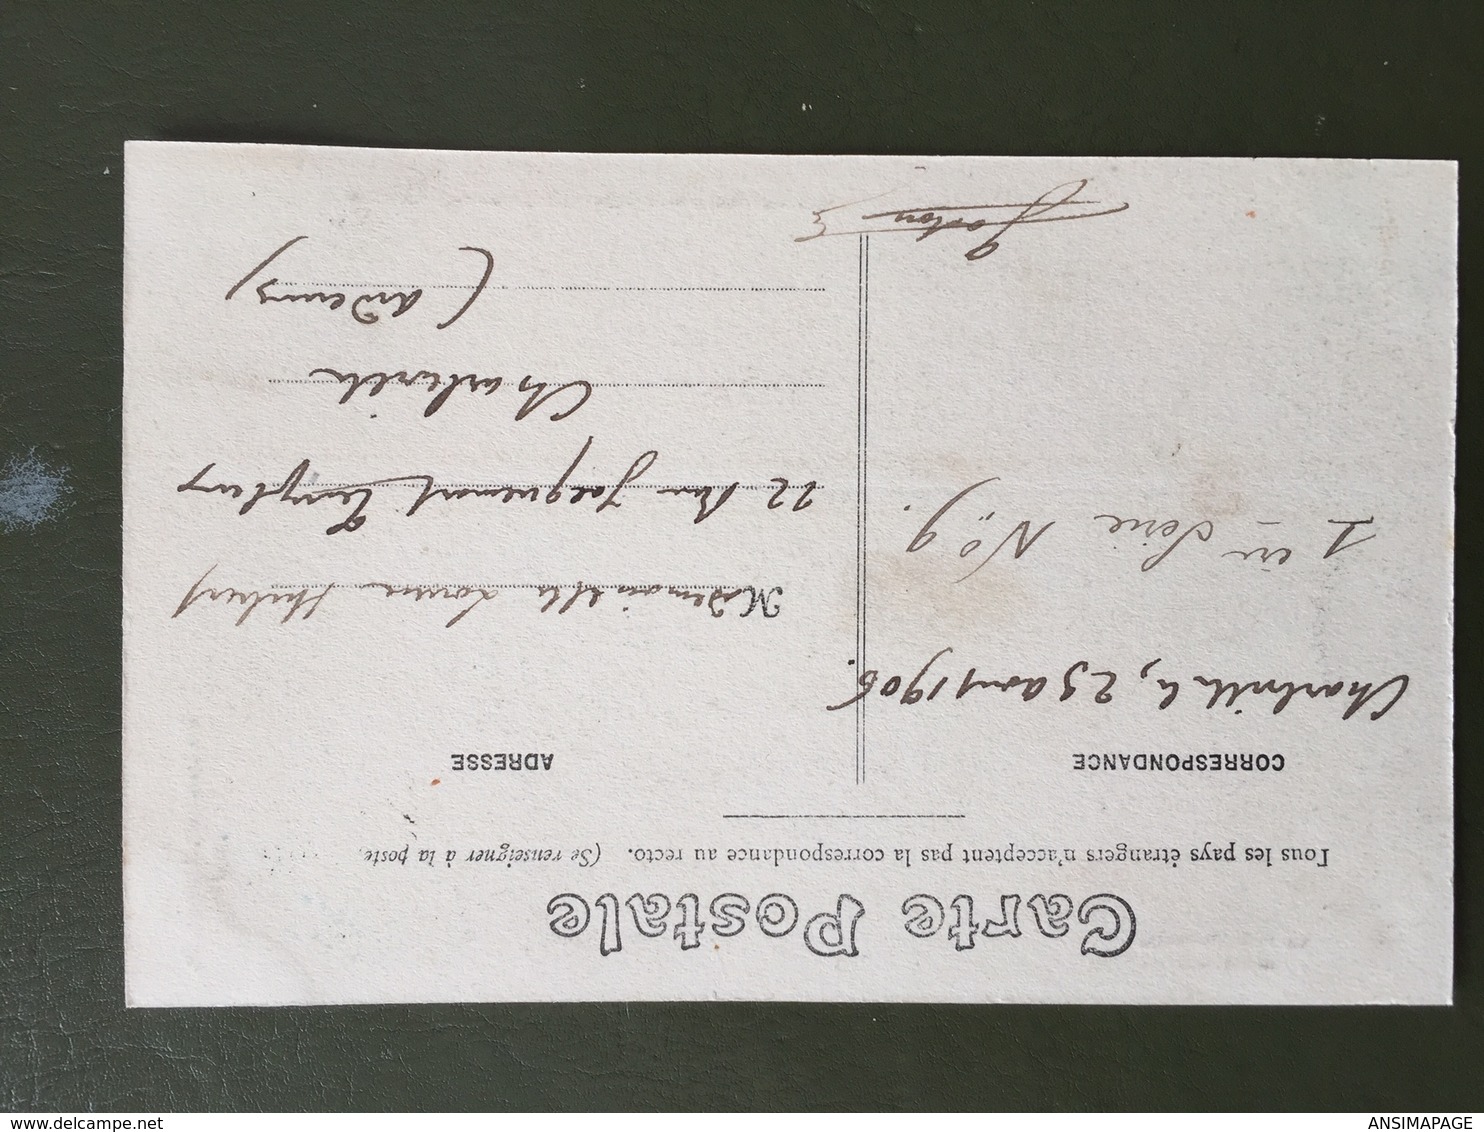 Carte Postale
Tous les pays étrangers n'acceptent pas la correspondance au recto. (Se renseigner à la poste)
CORRESPONDANCE
Charleville, 23 août 1906.
1ère Série No 9.
Gaston
ADRESSE
Mademoiselle
22 Rue Jacquemart Templeux
Charleville
(Ardennes)
ANSIMAPAGE